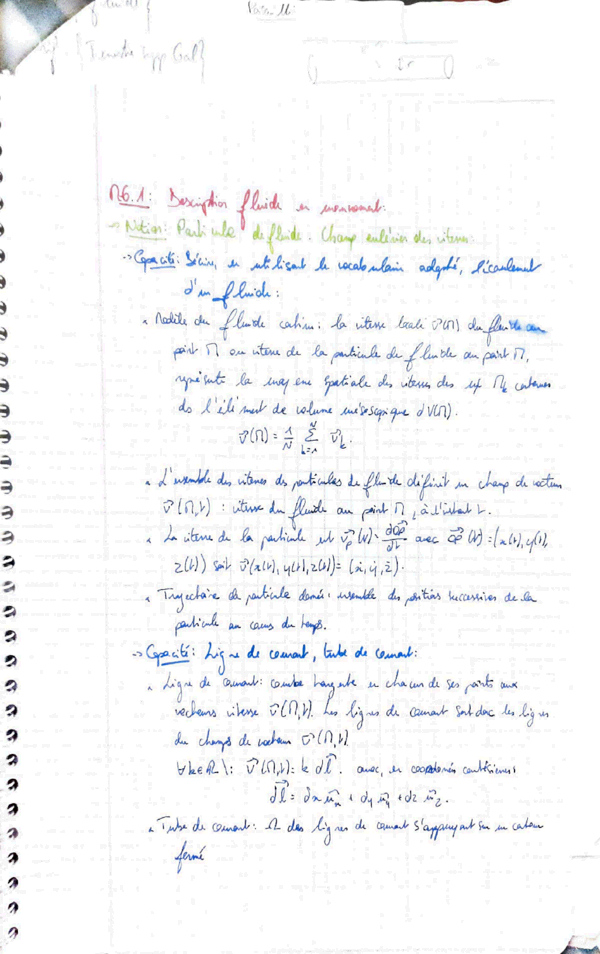 M6.1: Description fluide en mouvement.
→ Notion: Particule de fluide. Champ eulérien des vitesses.
→ Capacité: Décrire, en utilisant le vocabulaire adapté, l'écoulement
d'un fluide:
• Modèle du fluide continu: la vitesse locale v(M) du fluide au
point M ou vitesse de la particule de fluide au point M,
représente la moyenne spatiale des vitesses des Mk contenues
ds l'élément de volume mésoscopique dV(M).
v(M) = 1/N Σ_{k=1}^{N} v_k.
• L'ensemble des vitesses des particules de fluide définit un champ de vecteurs
v(M,t) : vitesse du fluide au point M, à l'instant t.
• La vitesse de la particule est v_p(t) = dOP/dt avec OP(t) = (x(t), y(t),
z(t)) soit v(x(t), y(t), z(t)) = (ẋ, ẏ, ż).
• Trajectoire de particule donnée: ensemble des positions successives de la
particule au cours du temps.
→ Capacité: Ligne de courant, tube de courant:
• Ligne de courant: courbe tangente en chacun de ses points aux
vecteurs vitesse v(M,t). Les lignes de courant sont donc les lignes
du champs de vecteurs v(M,t)
∀k∈ℝ\: v(M,t) = k dl. avec, en coordonnés cartésiennes:
dl = dx u_x + dy u_y + dz u_z.
• Tube de courant: des lignes de courant s'appuyant sur un contour
fermé